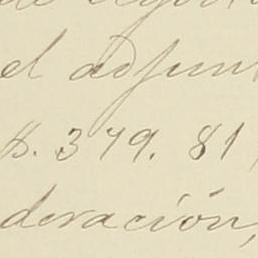 el adjun
$. 379. 81,
deración,